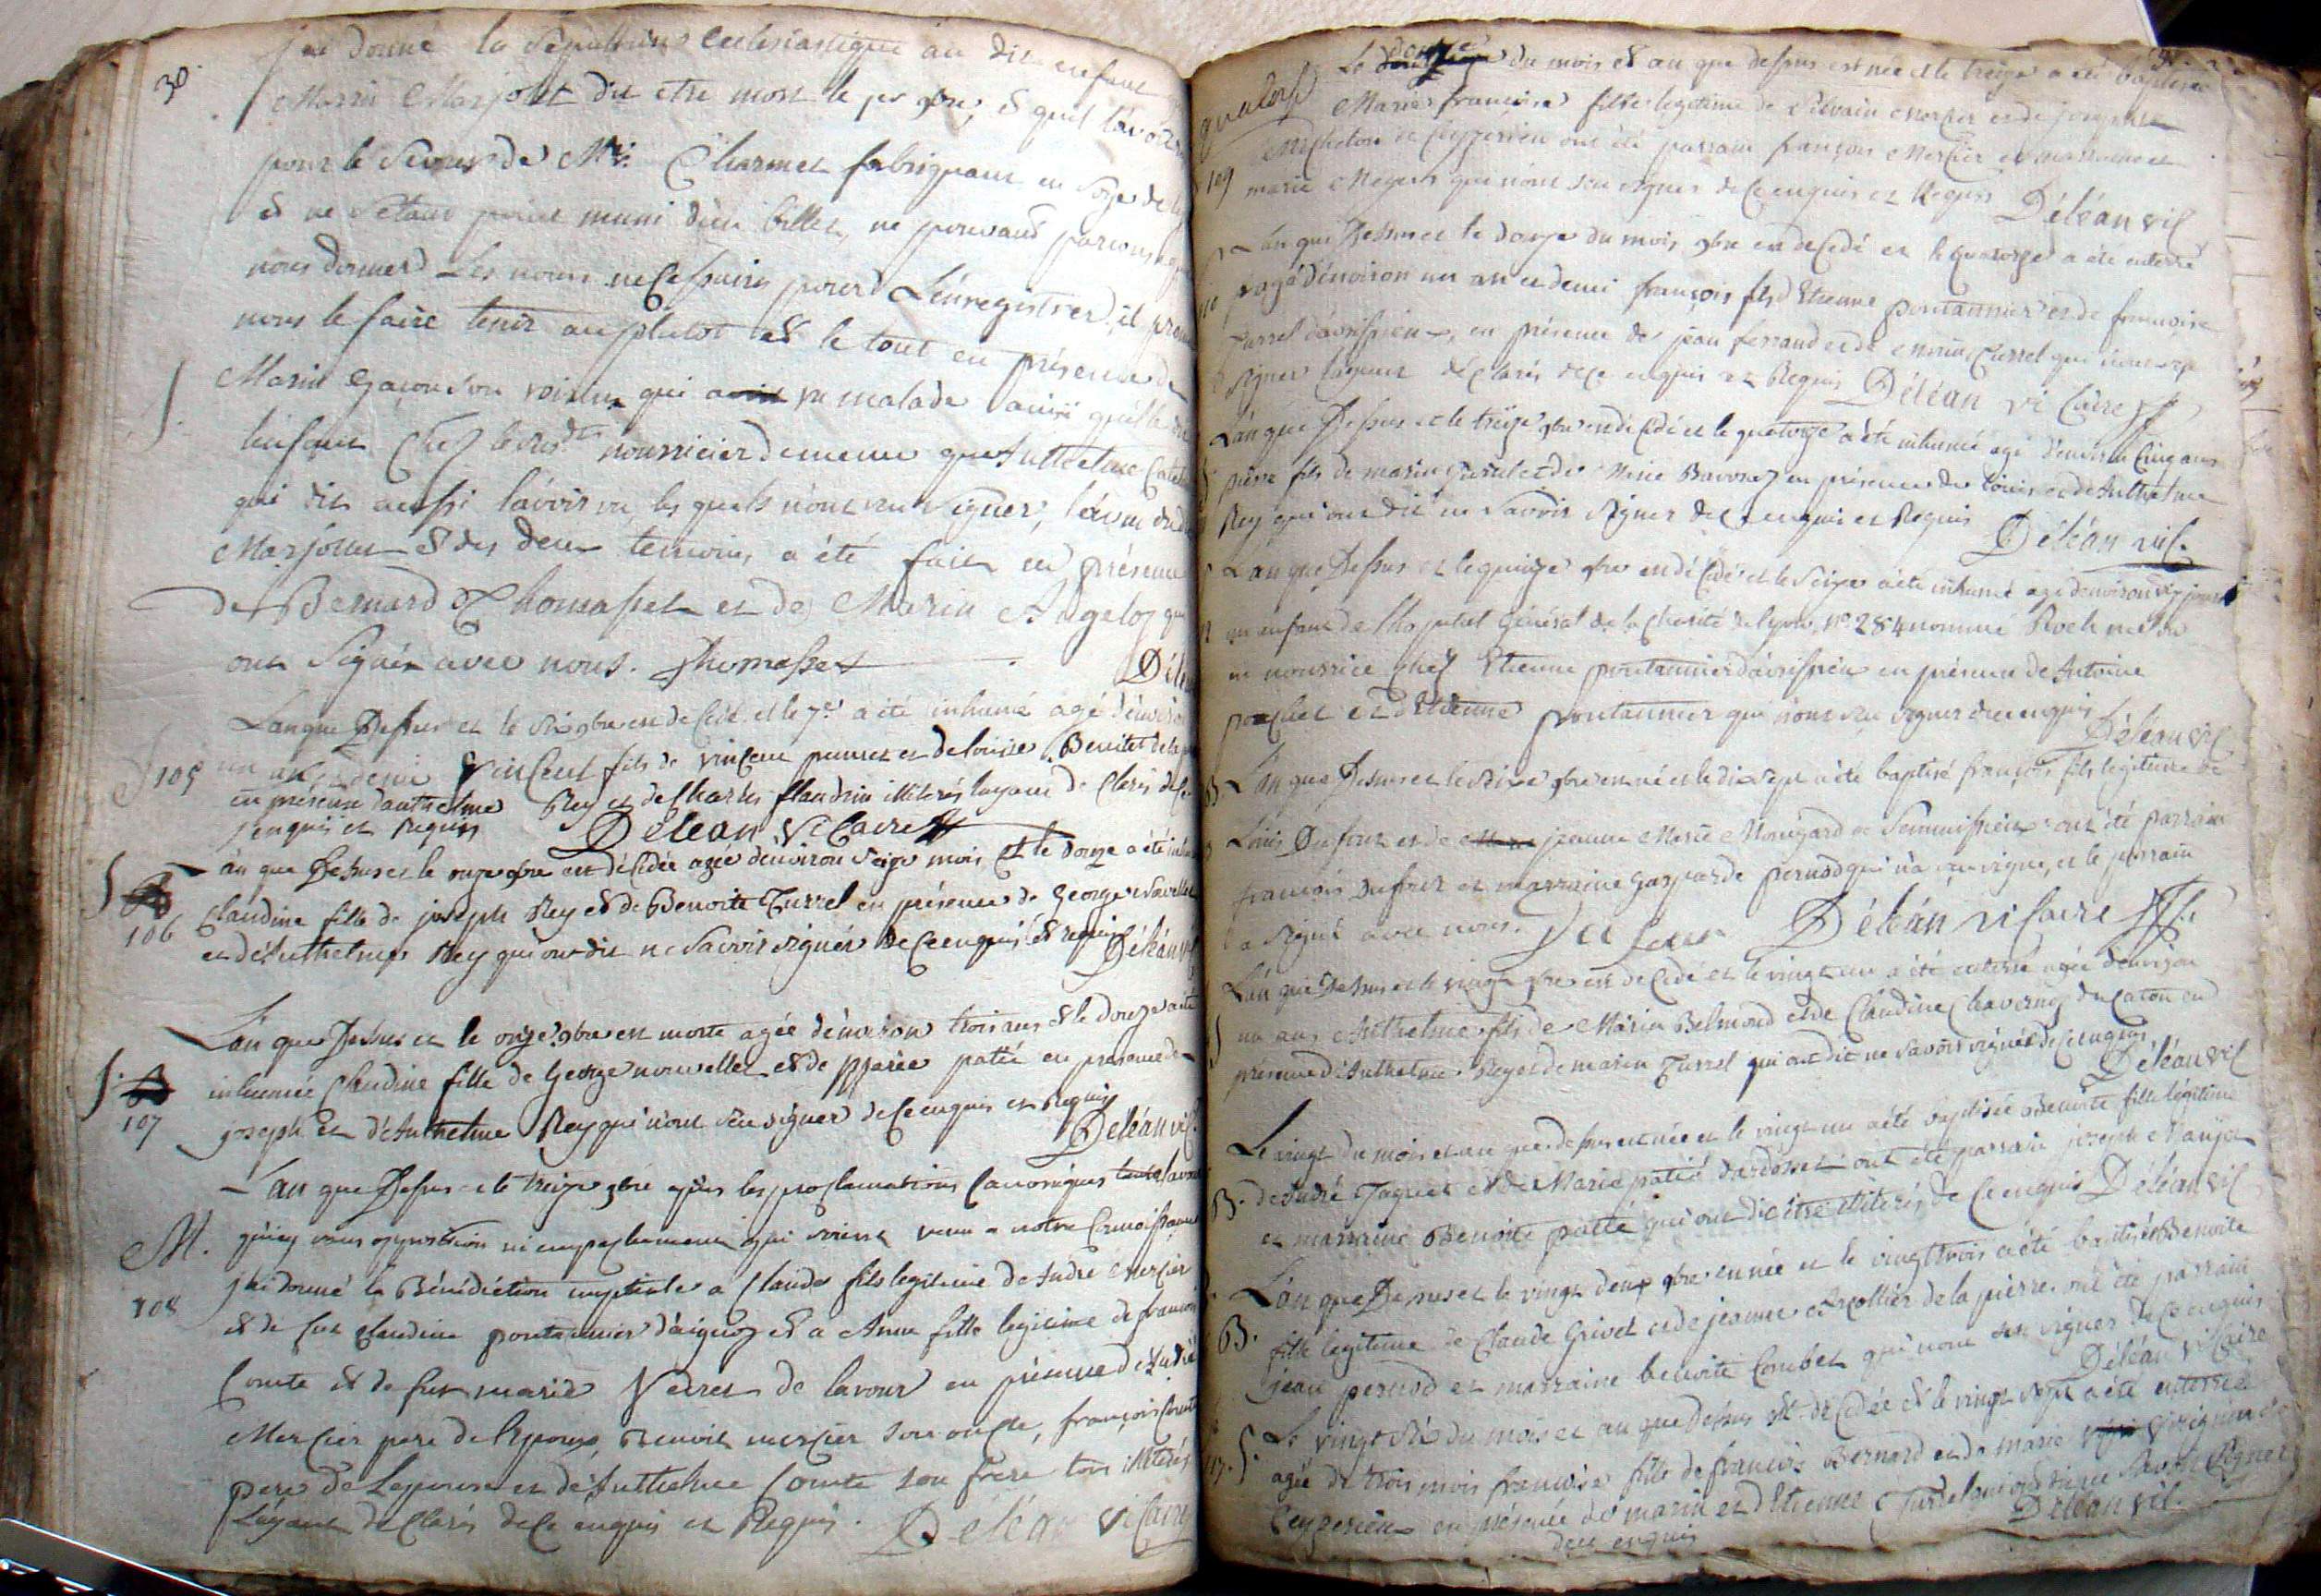 30.
j'ai donné la sépulture ecclesiastique au dit enfant
Marin Marjollet dit etre mort le per 9bre, & quil lavoit
pour le Sevrer de Mr. Charmet fabriquant en Soye de
& ne s'étant point muni d'un billet, ne pouvant
nous donner Les noms necessaires pour L'énregistrer, il
nous le faire tenir au plutot & le tout en présence de
S.
Marin son voisin qui a vu malade ainsi
l'enfant Chez le susdt nourricier demême que Anthelme
qui dit aussi l'avoir vu, les quels n'ont su signer, l'aveu
Marjollet & des deux temoins a été fait en présence
de Bernard Thomasset et de Marin Angeloz qui
ont Signés avec nous. Thomasset
L'an que Dessus et le Six 9bre est decedé et le 7e a été inhumé agé d'environ
105
un an et demi Vincent fils de vincent et de louise Benitet
en présence d'anthelme Rey et de Charles flandrin illiterés layant declarés dece
enquis et requis Déléan Vicaire
S
an que Dessus et le onze 9bre est décédée agée d'environ seize mois et le douze a été
106
Claudine fille de joseph Rey & de Benoite Turrel en présence de George
et d'Anthelme Rey qui ont dit ne Savoir signer de ce enquis & requis Déléan
L'an que Dessus et le onze 9bre est morte agée d'environ trois ans & le douze a été
S.
inhumée Claudine fille de George nouvellet & de marie patié en presence de
107
joseph et d'Anthelme Rey qui n'ont seu signer de ce enquis et Requis
Déléan vic.
L'an que Dessus & le treize 9bre après les proclamations Canoniques
M.
qu'aucune opposition ni empechement qui soient venu a notre Connoissance
108
j'ai donné la Bénédiction nuptiale a Claude fils legitime de André mercier
& de fut Claudine pontannier d'aignoz & a Anne fille legitime de francois
Comte & de fut marie Verret de lavour en présence d'André
Mercier pere de l'Epoux, Benoit mercier son oncle, françois Comte
pere de L'epouse et d'Anthelme Comte son frere tous illiterés
L'ayant declarés de ce enquis et Requis. Déléan Vicaire
Le douze du mois & an que dessus est née & le treize a été baptisée
quatorze
Marie françoise fille legitime de Silvain mercier et de josephte
109
Micheton de Ceyzerieu ont été parrain françois Mercier et marraine
marie qui n'ont seu signer de Ce enquis et Requis Déléan vic
L'an que Dessus et le douze du mois 9bre est decedé et le quatorze a été enterré
110
agé d'environ un an et demi françois fils d'Etienne pontannier et de francoise
Turrel d'avrissieu, en présence de jean ferrand et de marin Turrel qui n'ont sçu
signer layant déclarés dece enquis et Requis Déléan vicaire
L'an que Dessus et le treize 9bre est décédé et le quatorze a été inhumé agé d'environ Cinq ans
pierre fils de marin et de Marie Bavozet en présence de louis et de Anthelme
Rey qui ont dit ne Savoir Signer dece enquis et Requis Déléan vic.
L'an que Dessus et le quinze 9bre est décédé et le Seize a été inhumé agé denviron dix jours
un enfant de l'hopital Général de la Charité de Lyon, no. 284 nommé Roch
en nourrice Chez Etienne pontannier d'avrissieu en présence de Antoine
pochet et d'Etienne pontannier qui n'ont sçu signer de ce enquis
Déléan vic
B. L'an que Dessus et le Seize 9bre est né et le dix sept a été baptisé françois fils legitime de
Louis Dufour et de jeanne Marie Mongard de Semmissieu ont été parrain
francois Dufour et marraine Gasparde pernod qui n'a sceu signer, et le parrain
a signé avec nous. Dufour Déléan vicaire
L'an que Dessus et le vingt 9bre est decedé et le vingt un a été enterré agé d'environ
S
un ans Anthelme fils de Marin Belmond et de Claudine Chavornoz du Caton en
présence d'Anthelme Rey et de marin Turrel qui ont dit ne Savoir signer de ce enquis
Déléan vic
Le vingt du mois et an que dessus est née et le vingt un a été baptisée Benoite fille légitime
B.
de André Jaquet & de Marie patié d'ardosset ont été parrain joseph Manjot
et marraine Benoite patié qui ont dit être illiterés de Ce enquis Déléan vic
L'an que Dessus et le vingt deux 9bre est née et le vingt trois a été batisée Benoite
B.
fille legitime de Claude Grivet et de jeanne Arcollier de la pierre ont été parrain
jean pernod et marraine benoite Combet qui n'ont sçu signer de Ce enquis
Déléan Vicaire
Le vingt Six du mois et an que dessus est decedée & le vingt sept a été enterrée
117. S.
agée de trois mois francoise fille de francois Bernard et de marie
Ceyzerieu en présence de marin et d'Etienne Turrel qui ont dit ne Savoir Signer
dece enquis
Déléan vic.